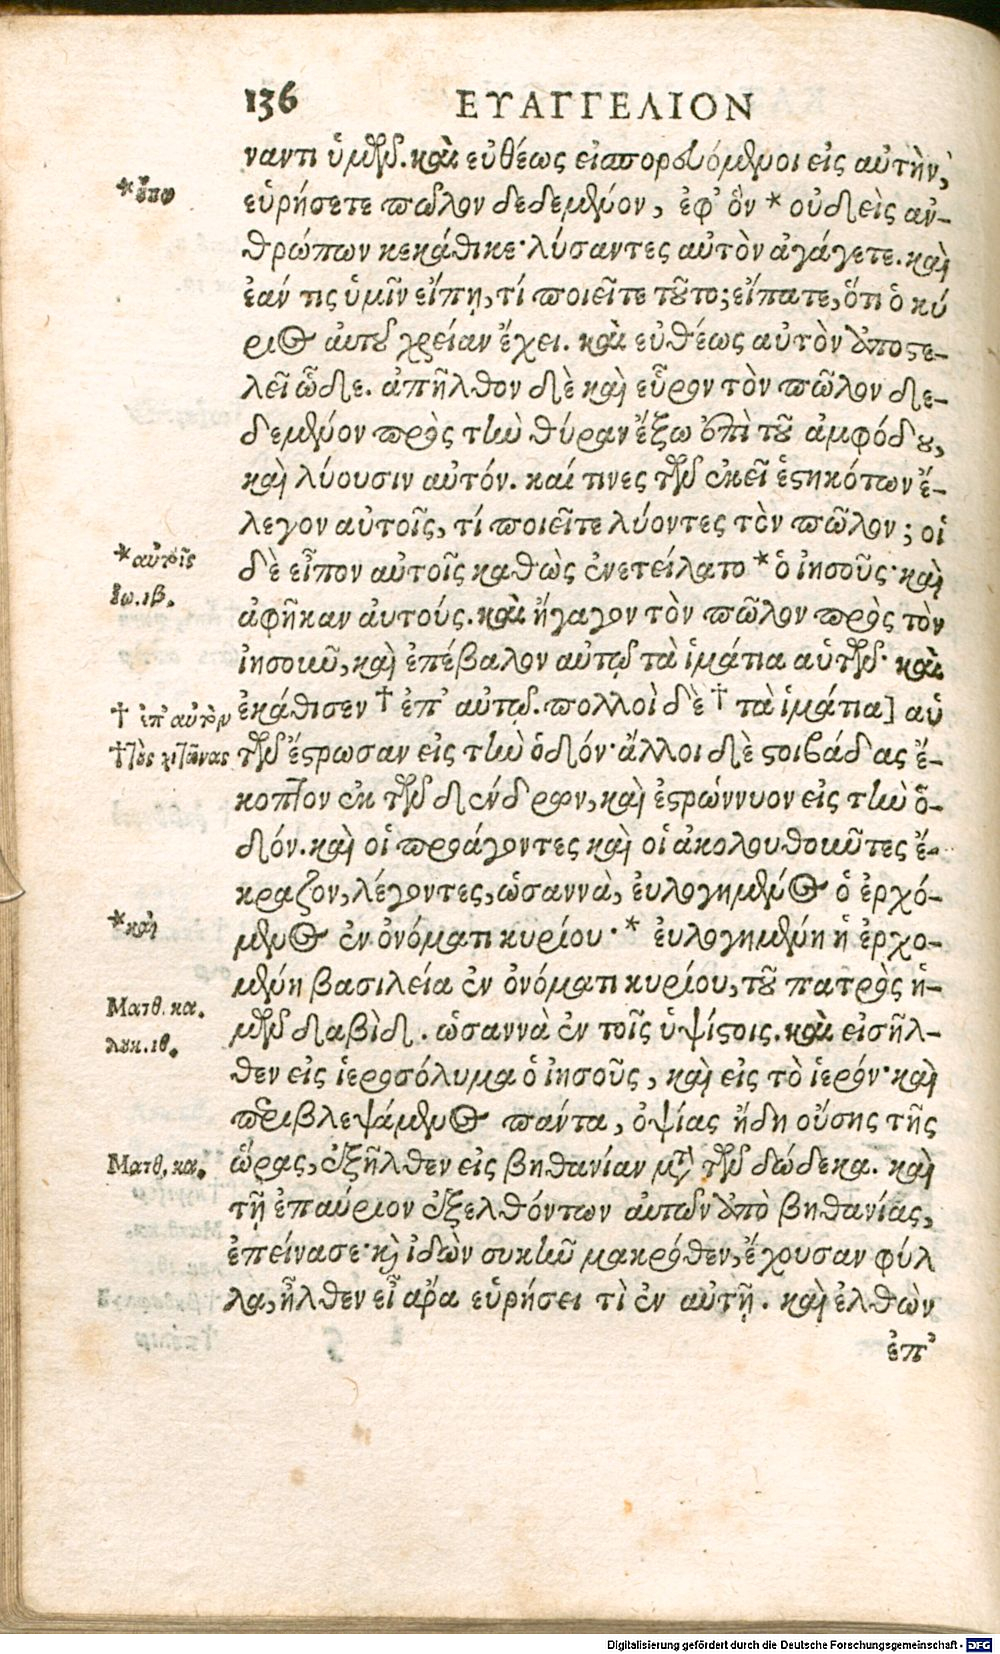 136 ΕΥΑΓΓΕΛΙΟΝ
ναντι ὑμῶν. καὶ εὐθέως εἰσπορευόμενοι εἰς αὐτὴν,
*οὔπω
εὑρήσετε πῶλον δεδεμένον, ἐφ’ ὃν * οὐδεὶς ἀν-
θρώπων κεκάθικε· λύσαντες αὐτὸν ἀγάγετε. καὶ
ἐάν τις ὑμῖν εἴπῃ, τί ποιεῖτε τοῦτο; εἴπατε, ὅτι ὁ κύ
ριος αὐτοῦ χρείαν ἔχει. καὶ εὐθέως αὐτὸν ἀποστε-
λεῖ ὧδε. ἀπῆλθον δὲ καὶ εὗρον τὸν πῶλον δε-
δεμένον πρὸς τὴν θύραν ἔξω ἐπὶ τοῦ ἀμφόδου,
καὶ λύουσιν αὐτόν. καί τινες τῶν ἐκεῖ ἑστηκότων ἔ-
λεγον αὐτοῖς, τί ποιεῖτε λύοντες τὸν πῶλον; οἱ
*αὐτοῖς
δὲ εἶπον αὐτοῖς καθὼς ἐνετείλατο * ὁ ἰησοῦς· καὶ
Ιω. ιβ.
ἀφῆκαν αὐτούς. καὶ ἤγαγον τὸν πῶλον πρὸς τὸν
ἰησοῦν, καὶ ἐπέβαλον αὐτῷ τὰ ἱμάτια αὑτῶν· καὶ
† ἐπ’ αὐτὸν
ἐκάθισεν † ἐπ’ αὐτῷ. πολλοὶ δὲ † τὰ ἱμάτια] αὑ
† τοὺς χιτῶνας
τῶν ἔστρωσαν εἰς τὴν ὁδόν· ἄλλοι δὲ στοιβάδας ἔ-
κοπτον ἐκ τῶν δένδρων, καὶ ἐστρώννυον εἰς τὴν ὁ-
δόν. καὶ οἱ προάγοντες καὶ οἱ ἀκολουθοῦντες ἔ-
κραζον, λέγοντες, ὡσαννὰ, ἐυλογημένος ὁ ἐρχό-
*καὶ
μενος ἐν ὀνόματι κυρίου· * ἐυλογημένη ἡ ἐρχο-
μένη βασιλεία ἐν ὀνόματι κυρίου, τοῦ πατρὸς ἡ-
Ματθ. κα.
μῶν δαβὶδ. ὡσαννὰ ἐν τοῖς ὑψίστοις. καὶ εἰσῆλ-
λουκ. ιθ.
θεν εἰς ἱεροσόλυμα ὁ ἰησοῦς, καὶ εἰς τὸ ἱερόν· καὶ
περιβλεψάμενος πάντα, ὀψίας ἤδη οὔσης τῆς
Ματθ. κα.
ὥρας, ἐξῆλθεν εἰς βηθανίαν μετὰ τῶν δώδεκα. καὶ
τῇ ἐπαύριον ἐξελθόντων αὐτῶν ἀπὸ βηθανίας,
ἐπείνασε· καὶ ἰδὼν συκῆν μακρόθεν, ἔχουσαν φύλ
λα, ἦλθεν εἰ ἄρα εὑρήσει τὶ ἐν αὐτῇ. καὶ ἐλθὼν
ἐπ’
Digitalisierung gefördert durch die Deutsche Forschungsgemeinschaft - DFG